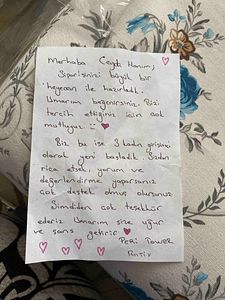 Merhaba Ceyda Hanım,
Siparişinizi büyük bir
heyecan ile hazırladık.
Umarım beğenirsiniz. Bizi
tercih ettiğiniz için çok
mutluyuz. :)
Biz bu işe 3 kadın girişimci
olarak yeni başladık. Sizden
rica etsek, yorum ve
değerlendirme yaparsanız
çok destek olmuş olursunuz.
Şimdiden çok teşekkür
ederiz Umarım size uğur
ve şans getirir
Peri Power